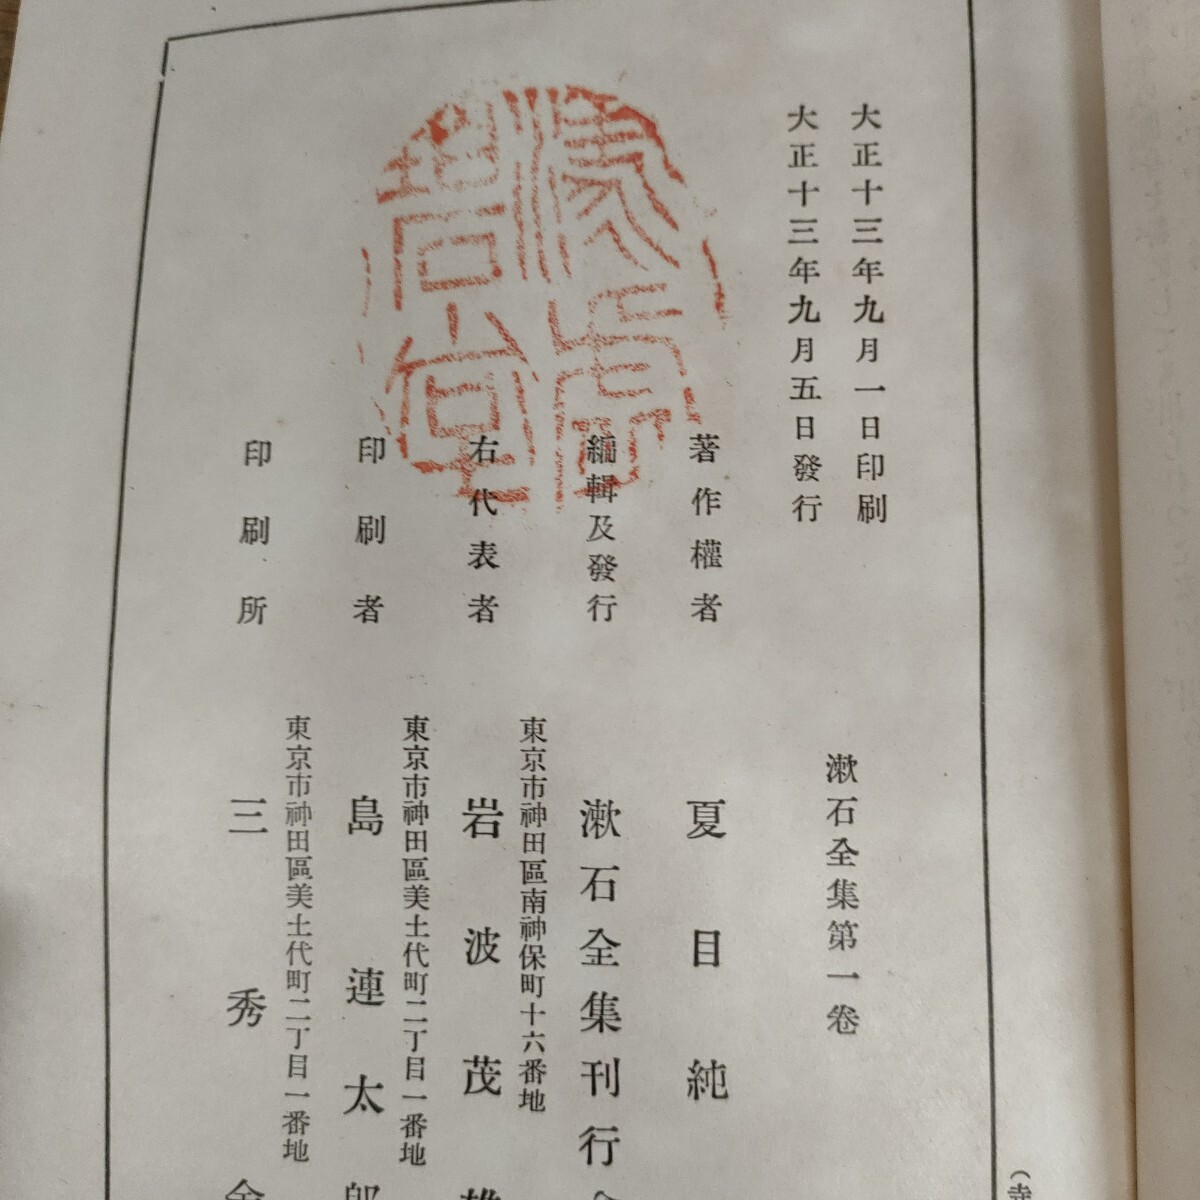 大正十三年九月一日印刷
大正十三年九月五日發行
漱石全集第一卷
著作權者
夏目純
編輯及發行
漱石全集刊行
右代表者
東京市神田區南神保町十六番地
岩波茂雄
印刷者
東京市神田區美土代町二丁目一番地
島連太郎
印刷所
東京市神田區美土代町二丁目一番地
三秀舍